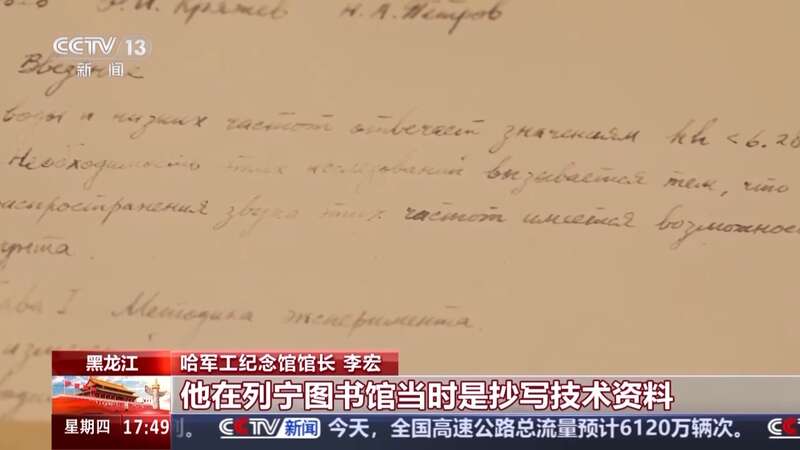 Ф.И. Кряжев Н.А. Петров
CCTV 13
新闻
Введение
воды и низких частот отвечает значениям kh < 6.28
Необходимость этих исследований вызывается тем, что
распространения звука этих частот имеется возможнос
грунта.
Глава I Методика эксперимента.
黑龙江 哈军工纪念馆馆长 李宏
他在列宁图书馆当时是抄写技术资料
星期四 17:49 列。 CCTV新闻 今天，全国高速公路总流量预计6120万辆次。 CCTV